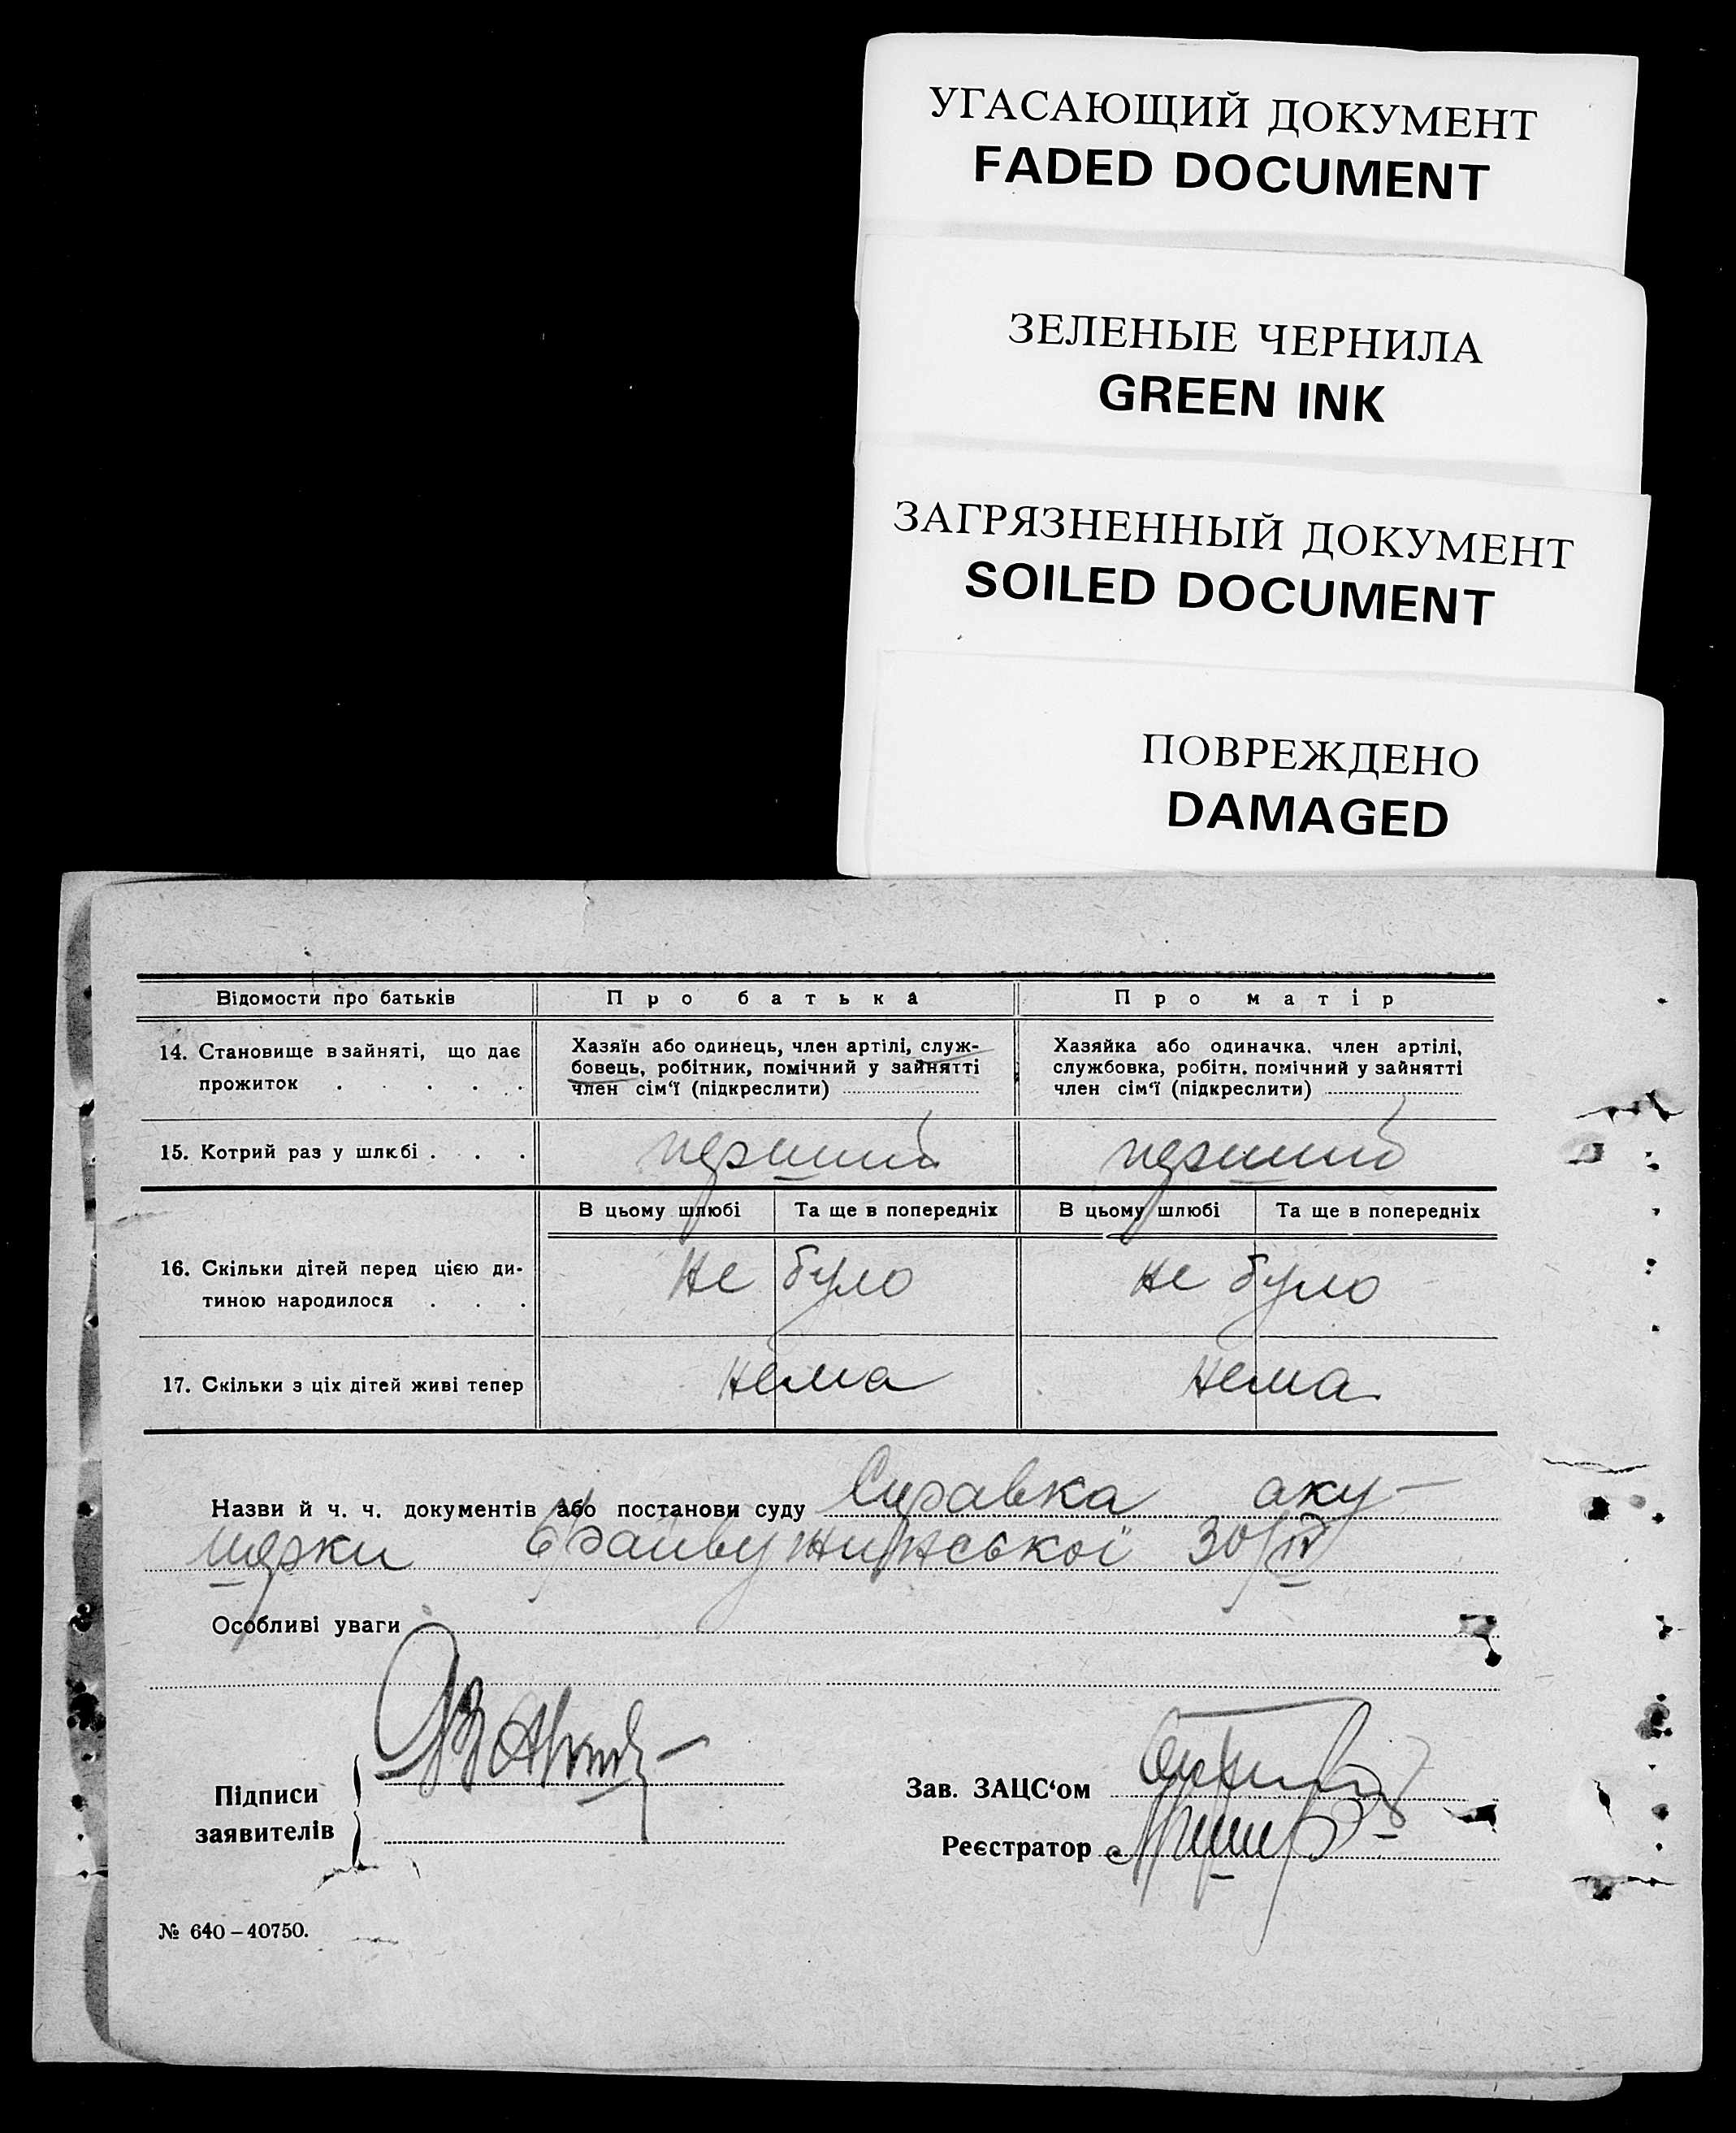 УГАСАЮЩИЙ ДОКУМЕНТ
FADED DOCUMENT
ЗЕЛЕНЫЕ ЧЕРНИЛА
GREEN INK
ЗАГРЯЗНЕННЫЙ ДОКУМЕНТ
SOILED DOCUMENT
ПОВРЕЖДЕНО
DAMAGED
Відомости про батьків
Про батька
Про матір
14. Становище в зайняті, що дає
прожиток . . . . .
Хазяїн або одинець, член артілі, служ-
бовець, робітник, помічний у зайнятті
член сім'ї (підкреслити)
Хазяйка або одиначка, член артілі,
службовка, робітн. помічний у зайнятті
член сім'ї (підкреслити)
15. Котрий раз у шлюбі . . .
перший
перший
В цьому шлюбі
Та ще в попередніх
В цьому шлюбі
Та ще в попередніх
16. Скільки дітей перед цією ди-
тиною народилося . . .
не було
не було
17. Скільки з ціх дітей живі тепер
нема
нема
Назви й ч. ч. документів або постанови суду Справка аку-
шерки 30/IV
Особливі уваги
Підписи
заявителів
Зав. ЗАЦС'ом
Реєстратор
№ 640-40750.